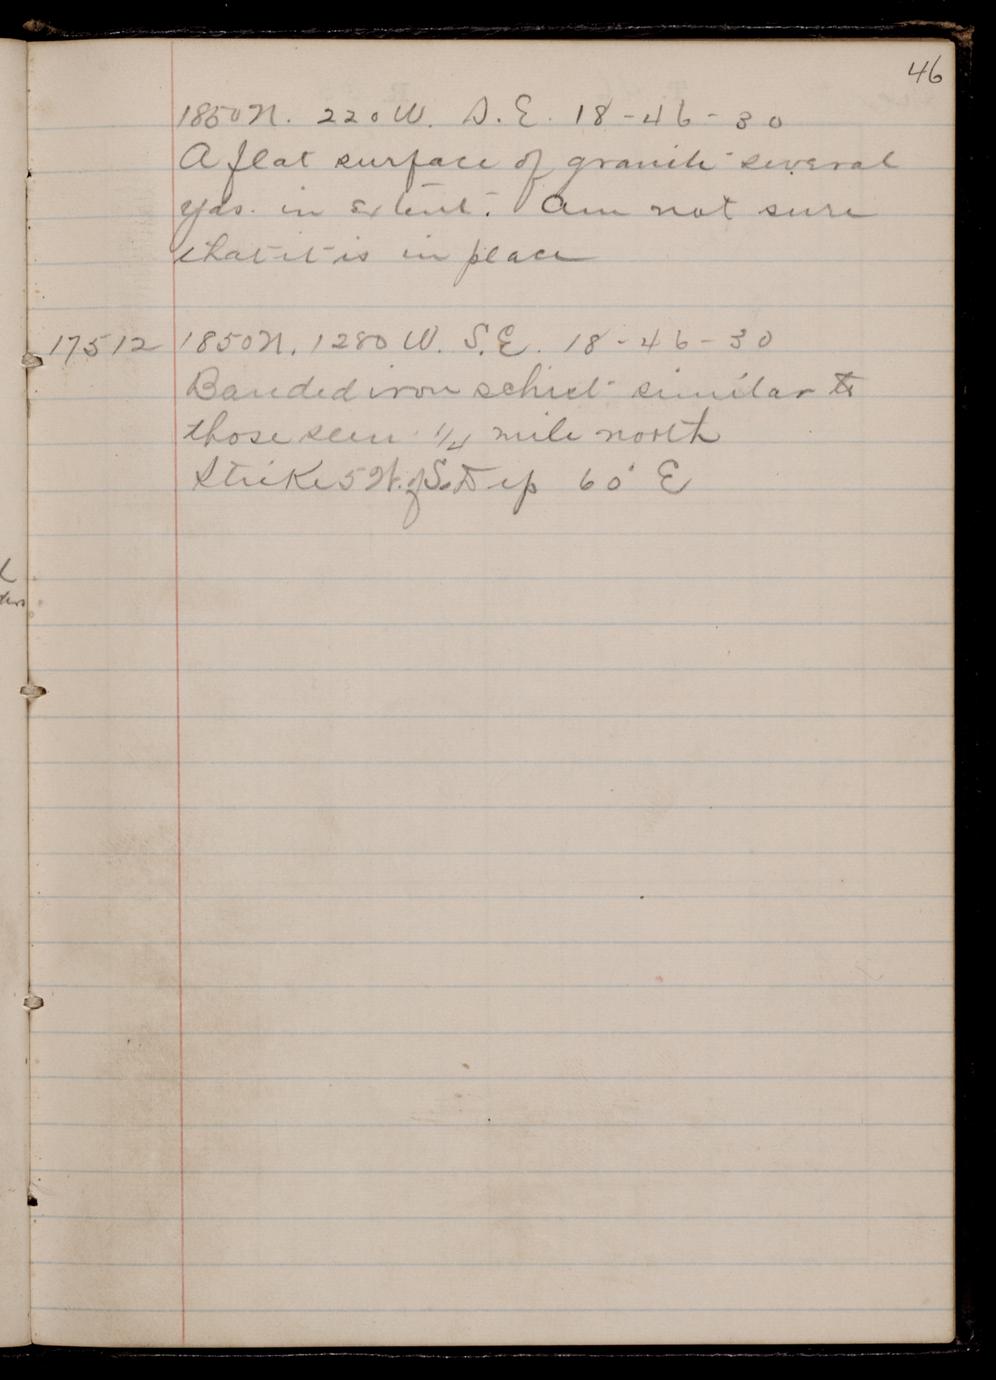 46
1850 N. 220 W. S. E. 18-46-30
A flat surface of granite several
yds. in extent. Am not sure
that it is in place
17512 1850 N. 1280 W. S.E. 18-46-30
Banded iron schist similar to
those seen 1/4 mile north
Strike 5 W. of S. Dip 60° E